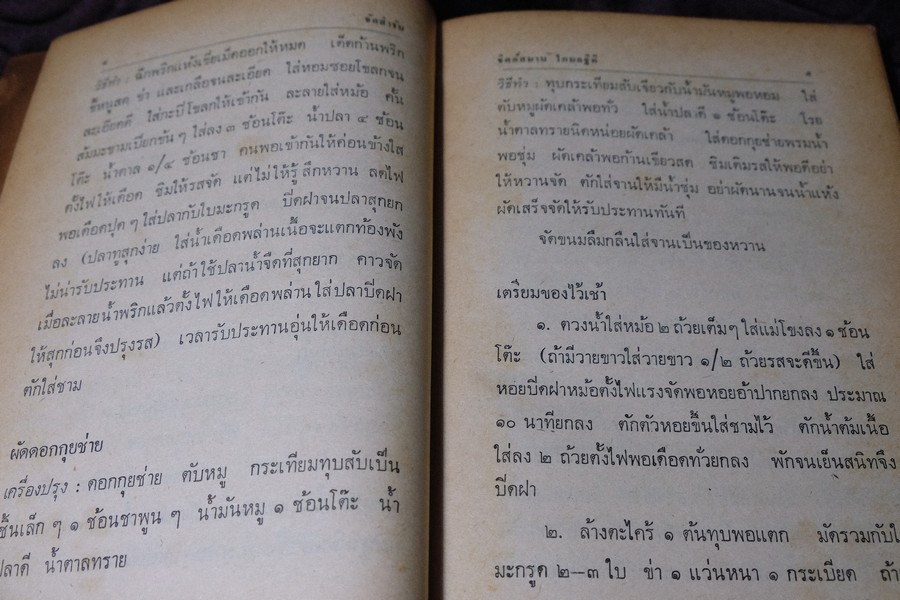 จัดสำรับ
วิธีทำ : ฉีกพริกแห้งเขี่ยเม็ดออกให้หมด เด็ดก้านพริก
ขี้หนูสด ข่า และเกลือจนละเอียด ใส่หอมซอยโขลกจน
ละเอียดดี ใส่กะปิโขลกให้เข้ากัน ละลายใส่หม้อ คั้น
ส้มมะขามเปียกข้น ๆ ใส่ลง ๓ ช้อนโต๊ะ น้ำปลา ๔ ช้อน
โต๊ะ น้ำตาล ๑/๔ ช้อนชา คนพอเข้ากันให้ค่อนข้างใส
ตั้งไฟให้เดือด ชิมให้รสจัด แต่ไม่ให้รู้สึกหวาน ลดไฟ
พอเดือดปุด ๆ ใส่ปลากับใบมะกรูด ปิดฝาจนปลาสุกยก
ลง (ปลาทูสุกง่าย ใส่น้ำเดือดพล่านเนื้อจะแตกท้องพัง
ไม่น่ารับประทาน แต่ถ้าใช้ปลาน้ำจืดที่สุกยาก คาวจัด
เมื่อละลายน้ำพริกแล้วตั้งไฟให้เดือดพล่าน ใส่ปลาปิดฝา
ให้สุกก่อนจึงปรุงรส) เวลารับประทานอุ่นให้เดือดก่อน
ตักใส่ชาม
ผัดดอกกุยช่าย
เครื่องปรุง : ดอกกุยช่าย ตับหมู กระเทียมทุบสับเป็น
ชิ้นเล็ก ๆ ๑ ช้อนชาพูน ๆ น้ำมันหมู ๑ ช้อนโต๊ะ น้ำ
ปลาดี น้ำตาลทราย
จิตต์สมาน โกมลฐิติ
๕
วิธีทำ : ทุบกระเทียมสับเจียวกับน้ำมันหมูพอหอม ใส่
ตับหมูผัดเคล้าพอทั่ว ใส่น้ำปลาดี ๑ ช้อนโต๊ะ โรย
น้ำตาลทรายนิดหน่อยผัดเคล้า ใส่ดอกกุยช่ายพรมน้ำ
พอชุ่ม ผัดเคล้าพอก้านเขียวสด ชิมเติมรสให้พอดีอย่า
ให้หวานจัด ตักใส่จานให้มีน้ำชุ่ม อย่าผัดนานจนน้ำแห้ง
ผัดเสร็จจัดให้รับประทานทันที
จัดขนมลืมกลืนใส่จานเป็นของหวาน
เตรียมของไว้เช้า
๑. ตวงน้ำใส่หม้อ ๒ ถ้วยเต็มๆ ใส่แม่โขงลง ๑ ช้อน
โต๊ะ (ถ้ามีวายขาวใส่วายขาว ๑/๒ ถ้วยรสจะดีขึ้น) ใส่
หอยปิดฝาหม้อตั้งไฟแรงจัดพอหอยอ้าปากยกลง ประมาณ
๑๐ นาทียกลง ตักตัวหอยขึ้นใส่ชามไว้ ตักน้ำต้มเนื้อ
ใส่ลง ๒ ถ้วยตั้งไฟพอเดือดทั่วยกลง พักจนเย็นสนิทจึง
ปิดฝา
๒. ล้างตะไคร้ ๑ ต้นทุบพอแตก มัดรวมกับใ
มะกรูด ๒–๓ ใบ ข่า ๑ แว่นหนา ๑ กระเบียด ถ้า